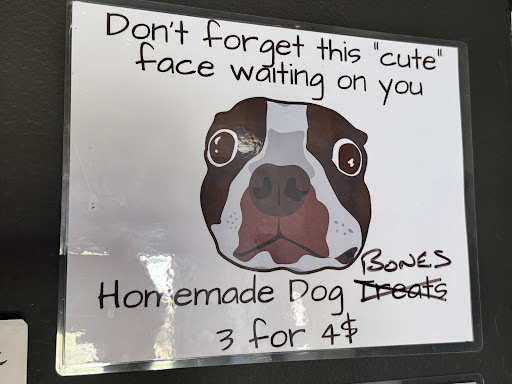 Don't forget this "cute"
face waiting on you
BONES
Homemade Dog Treats
3 for 4$